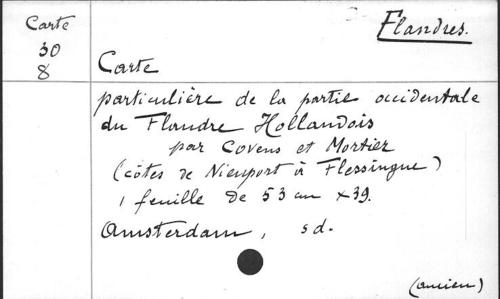 Carte
30
8
Flandres.
Carte
particulière de la partie occidentale
du Flandre Hollandois
par Covens et Mortier
(côtes de Nieuport à Flessingue)
1 feuille de 53 cm x 39.
Amsterdam, sd.
(ancien)